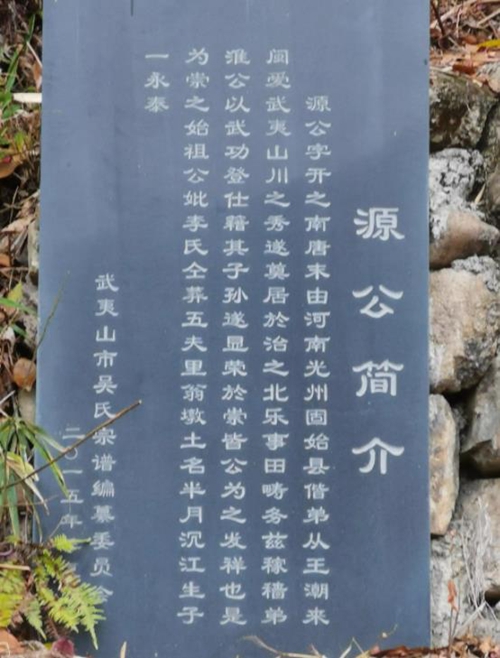 源公简介
源公字开之南唐末由河南光州固始县偕弟从王潮来
闽爱武夷山川之秀遂奠居於治之北乐事田畴务兹稼穑弟
淮公以武功登仕籍其子孙遂显荣於崇皆公为之发祥也是
为崇之始祖公妣李氏仝葬五夫里翁墩土名半月沉江生子
一永泰
武夷山市吴氏宗谱编纂委员会
二〇一五年